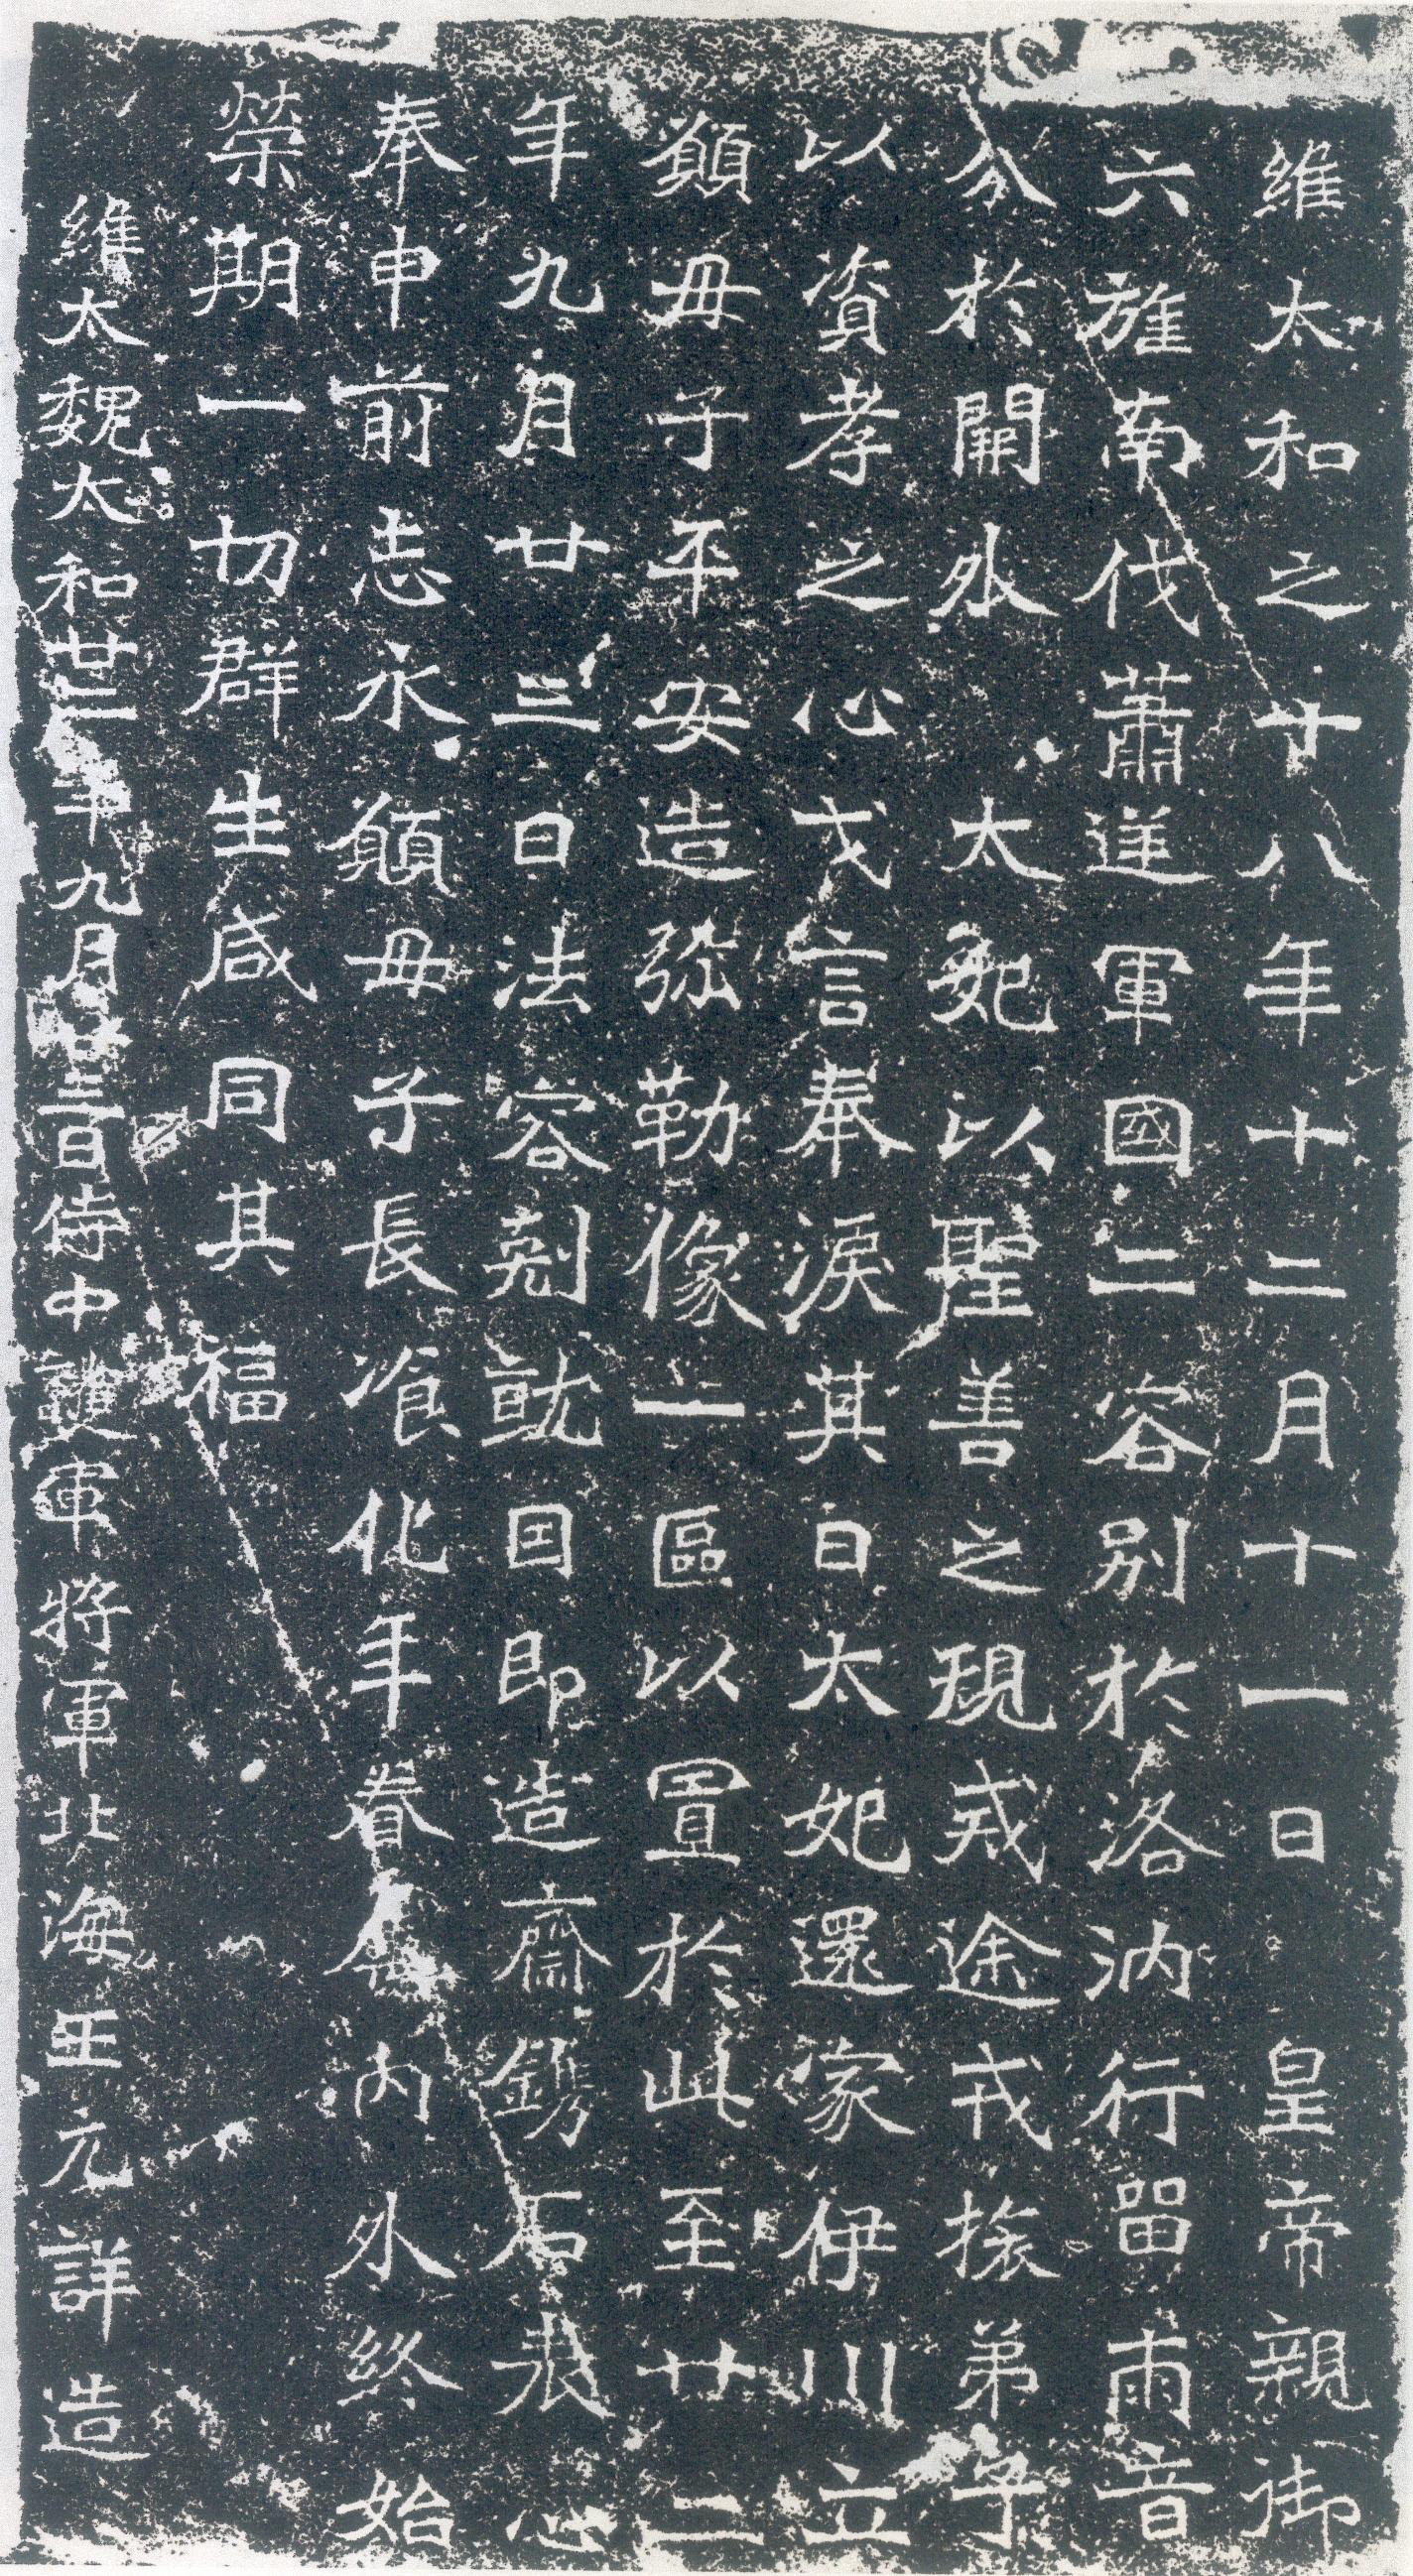 維太和之十八年十二月十一日皇帝親御
六旌南伐蕭逆軍國二容別於洛汭行留兩音
分於闕外太妃以聖善之規戒途戎旅弟子
以資孝之心戈言奉淚其日太妃還家伊川立
願母子平安造弥勒像一區以置於此至廿二
年九月廿三日法容剋就因即造齋鐫石表心
奉申前志永願母子長飡化年眷命內外終始
榮期一切群生咸同其福
維太魏太和廿二年九月廿三日侍中護軍將軍北海王元詳造